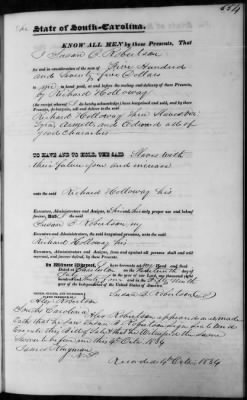 The State of South-Carolina.
KNOW ALL MEN by these Presents, That
I Susan B Robertson
for and in consideration of the sum of Five Hundred
and Seventy five Dollars
to me in hand paid, at and before the sealing and delivery of these Presents,
by Richard Holloway
(the receipt whereof I do hereby acknowledge) have bargained and sold, and by these
Presents, do bargain, sell and deliver to the said
Richard Holloway
and Edward all of
good Character
TO HAVE AND TO HOLD, THE SAID Slaves with
their future issue and increase
unto the said Richard Holloway his
Executors, Administrators and Assigns, to his and their only proper use and behoof
forever. And I the said
Susan B Robertson my
Executors and Administrators, the said bargained premises, unto the said
Richard Holloway his
Executors, Administrators and Assigns, from and against all persons shall and will
warrant, and forever defend, by these Presents.
In Witness Whereof, I have hereunto set my Hand and Seal
Dated at Charleston on the
in the year of our Lord, one thousand eight
hundred and thirty four and in the Fifty Ninth
year of the independence of the United States of America.
SIGNED, SEALED, AND DELIVERED
IN THE PRESENCE OF
Susan B Robertson
Alex Robertson
South Carolina Alex Robertson appeared and made
Oath that he saw Susan B Robertson sign seal and
Execute this Bill of Sale & that he Witnessed the same
Sworn to before me this 4th Octr 1834
Recorded 4th Octr 1834